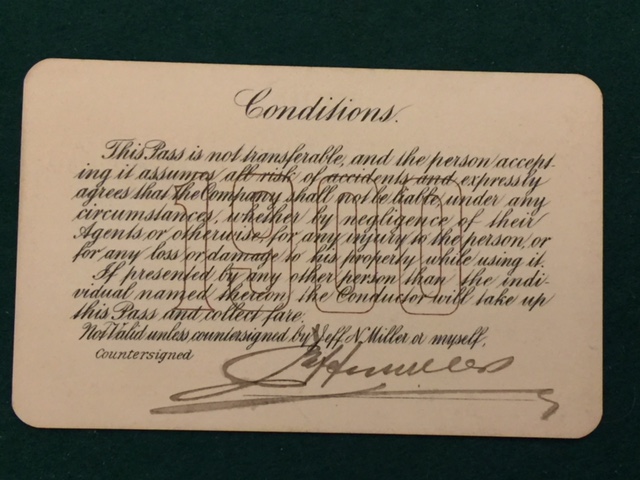 Conditions.
This Pass is not transferable, and the person accept-
ing it assumes all risk of accidents and expressly
agrees that the Company shall not be liable under any
circumstances, whether by negligence of their
Agents or otherwise, for any injury to the person, or
for any loss or damage to his property while using it.
If presented by any other person than the indi-
vidual named thereon, the Conductor will take up
this Pass and collect fare.
Not Valid unless countersigned by Jeff N. Miller or myself.
Countersigned
Jeff N Miller
1900